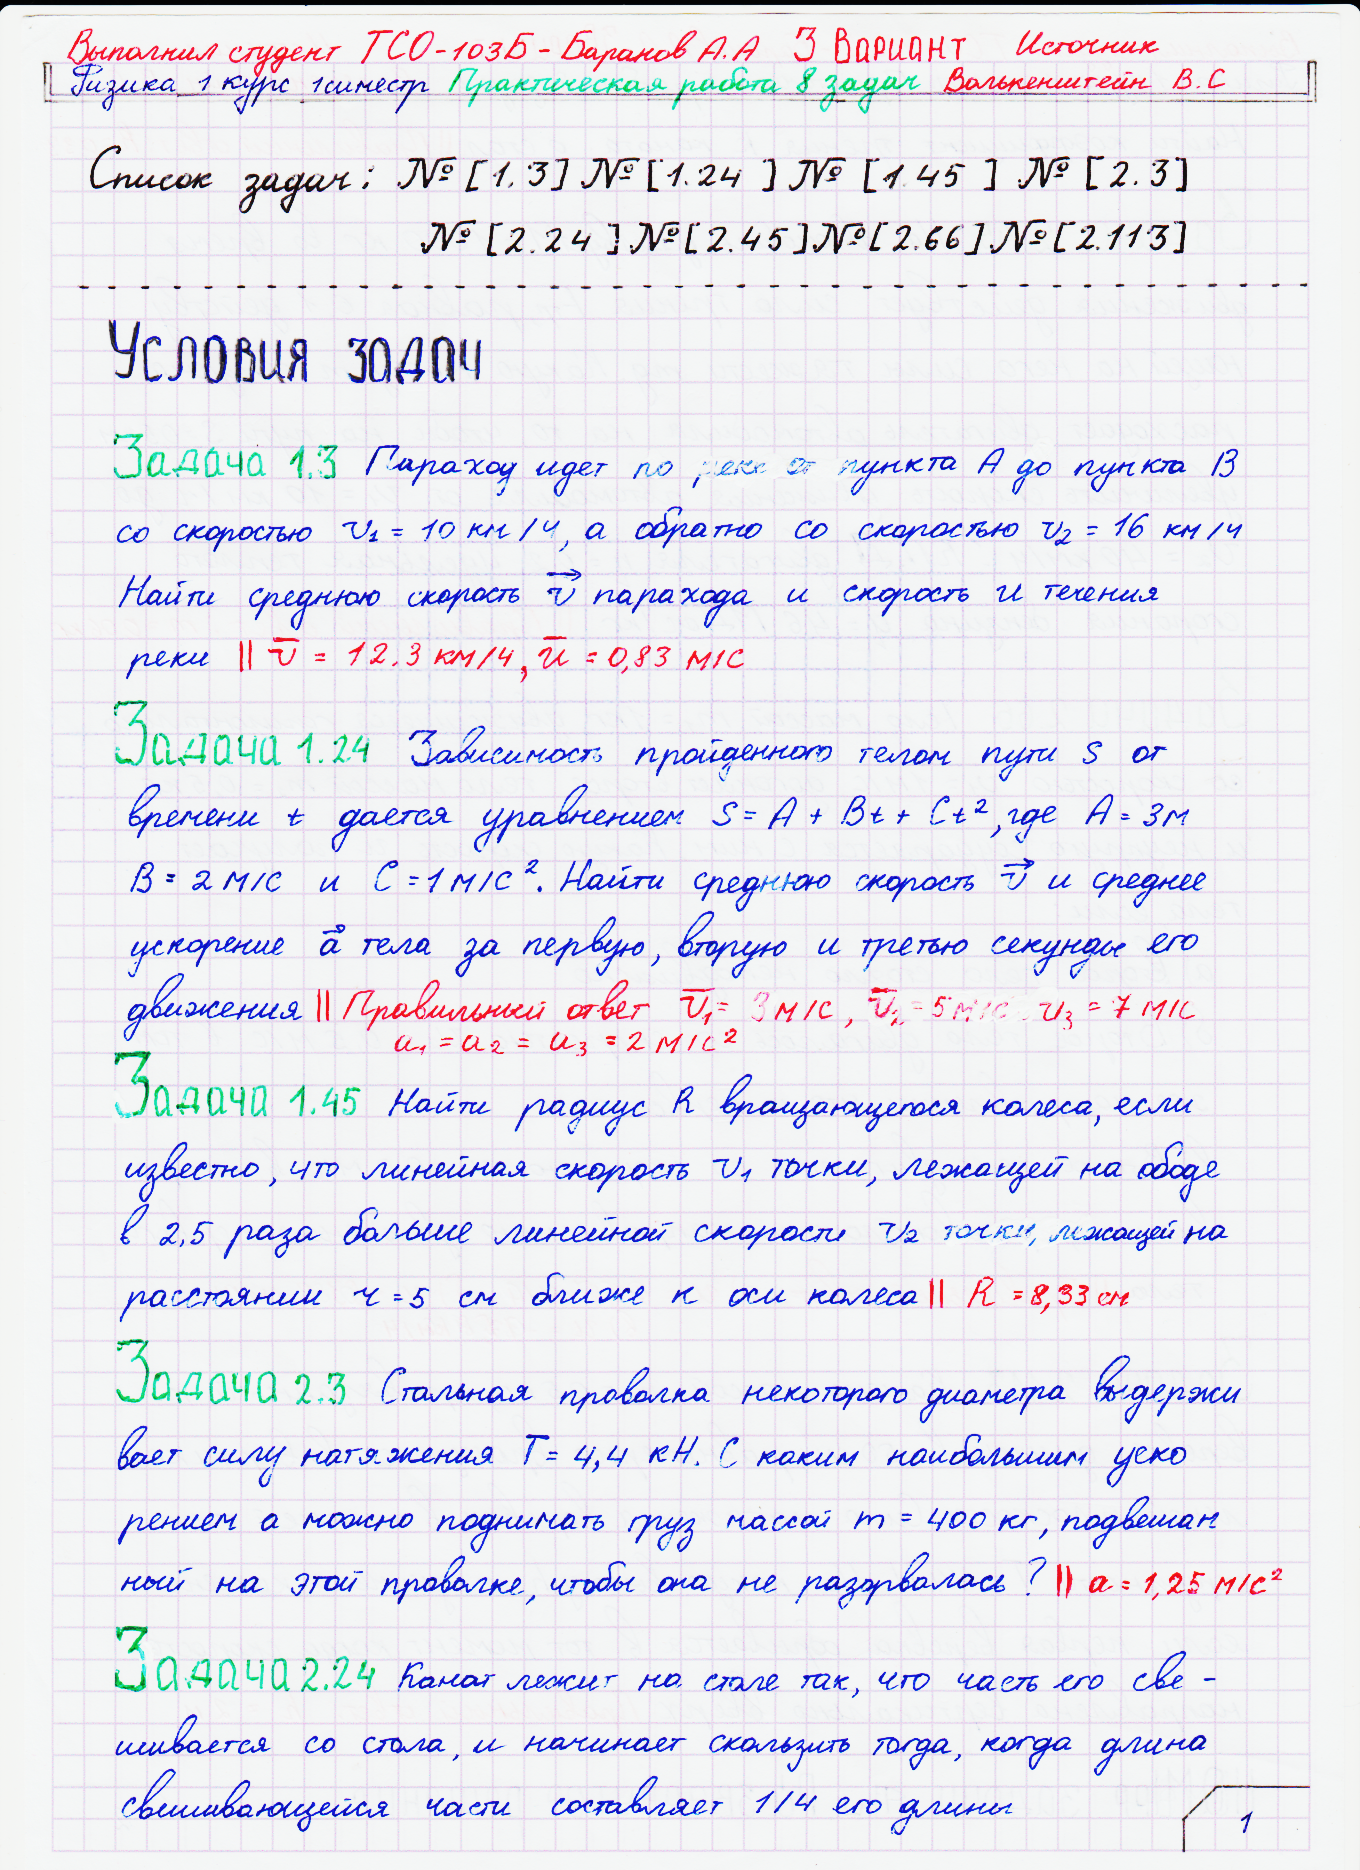 Выполнил студент ТСО-103Б - Баранов А.А 3 Вариант Источник
Физика 1 курс 1симестр Практическая работа 8 задач Валькенштейн В.С
Список задач: № [1.3] № [1.24] № [1.45] № [2.3]
№ [2.24] № [2.45] № [2.66] № [2.113]
Условия задач
Задача 1.3 Параход идет по реке от пункта А до пункта В
со скоростью v₁ = 10 км/ч, а обратно со скоростью v₂ = 16 км/ч
Найти среднюю скорость v⃗ парахода и скорость u течения
реки || v̅ = 12.3 км/ч, u̅ = 0,83 м/с
Задача 1.24 Зависимость пройденного телом пути S от
времени t дается уравнением S = A + Bt + Ct², где A = 3м
B = 2 м/с и C = 1 м/с². Найти среднюю скорость v⃗ и среднее
ускорение a⃗ тела за первую, вторую и третью секунды его
движения || Правильный ответ v̅₁ = 3 м/с, v̅₂ = 5 м/с v₃ = 7 м/с
a₁ = a₂ = a₃ = 2 м/с²
Задача 1.45 Найти радиус R вращающегося колеса, если
известно, что линейная скорость v₁ точки, лежащей на ободе
в 2,5 раза больше линейной скорости v₂ точки, лежащей на
расстоянии r = 5 см ближе к оси колеса || R = 8,33 см
Задача 2.3 Стальная проволка некоторого диаметра выдержи
вает силу натяжения T = 4,4 кН. С каким наибольшим уско
рением а можно поднимать груз массой m = 400 кг, подвешан
ный на этой проволке, чтобы она не разорвалась? || a = 1,25 м/с²
Задача 2.24 Канат лежит на столе так, что часть его све -
шивается со стола, и начинает скользить тогда, когда длина
свешивающейся части составляет 1/4 его длины
1